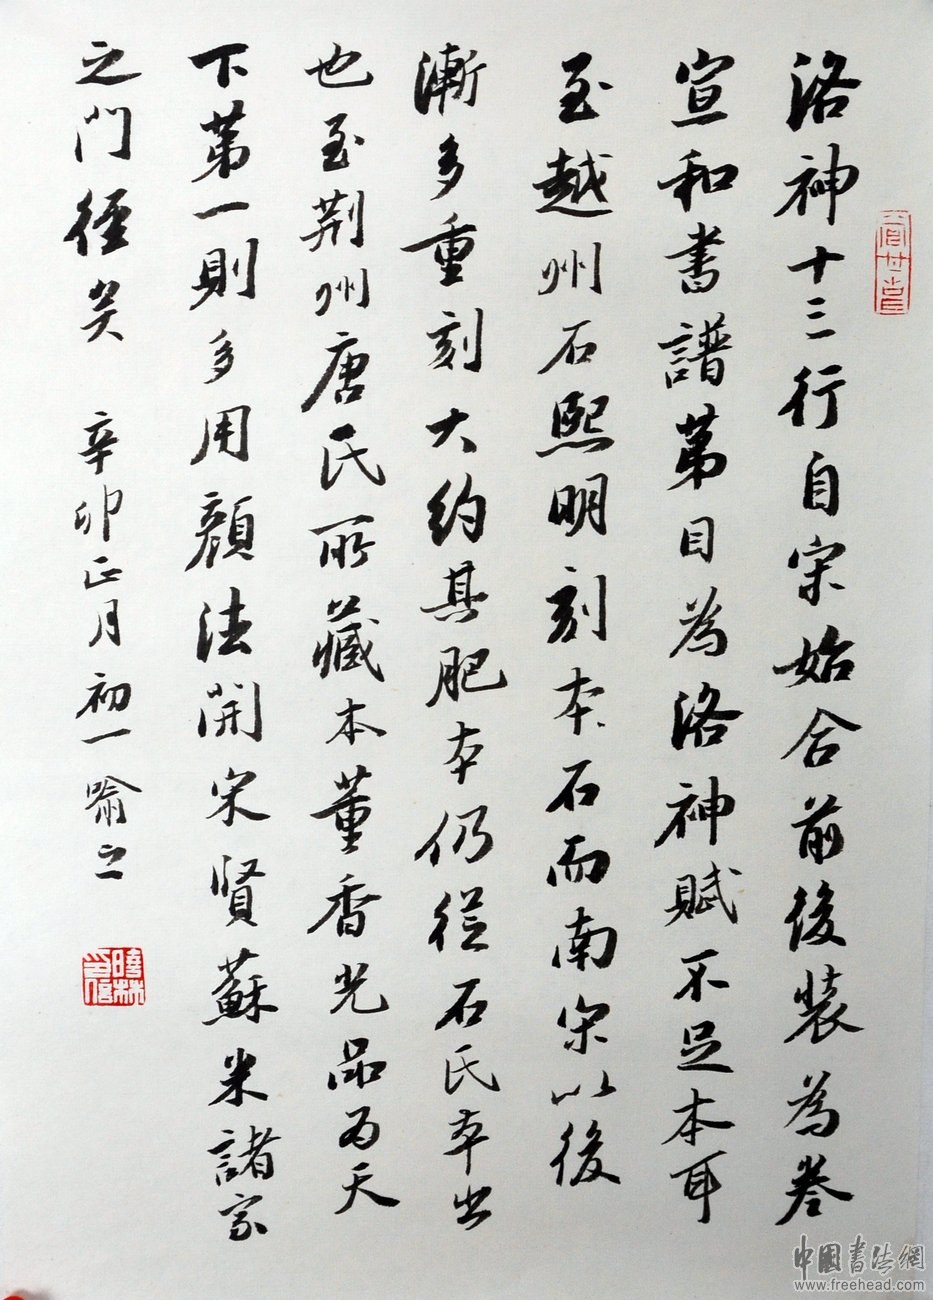 洛神十三行自宋始合前後裝為卷
宣和書譜第目為洛神賦不足本耳
至越州石熙明刻本石而南宋以後
漸多重刻大約其肥本仍從石氏本出
也至荆州唐氏所藏本董香光品為天
下第一則多用顏法開宋賢蘇米諸家
之門徑矣 辛卯正月初一喻之
中國書法網
www.freehead.com